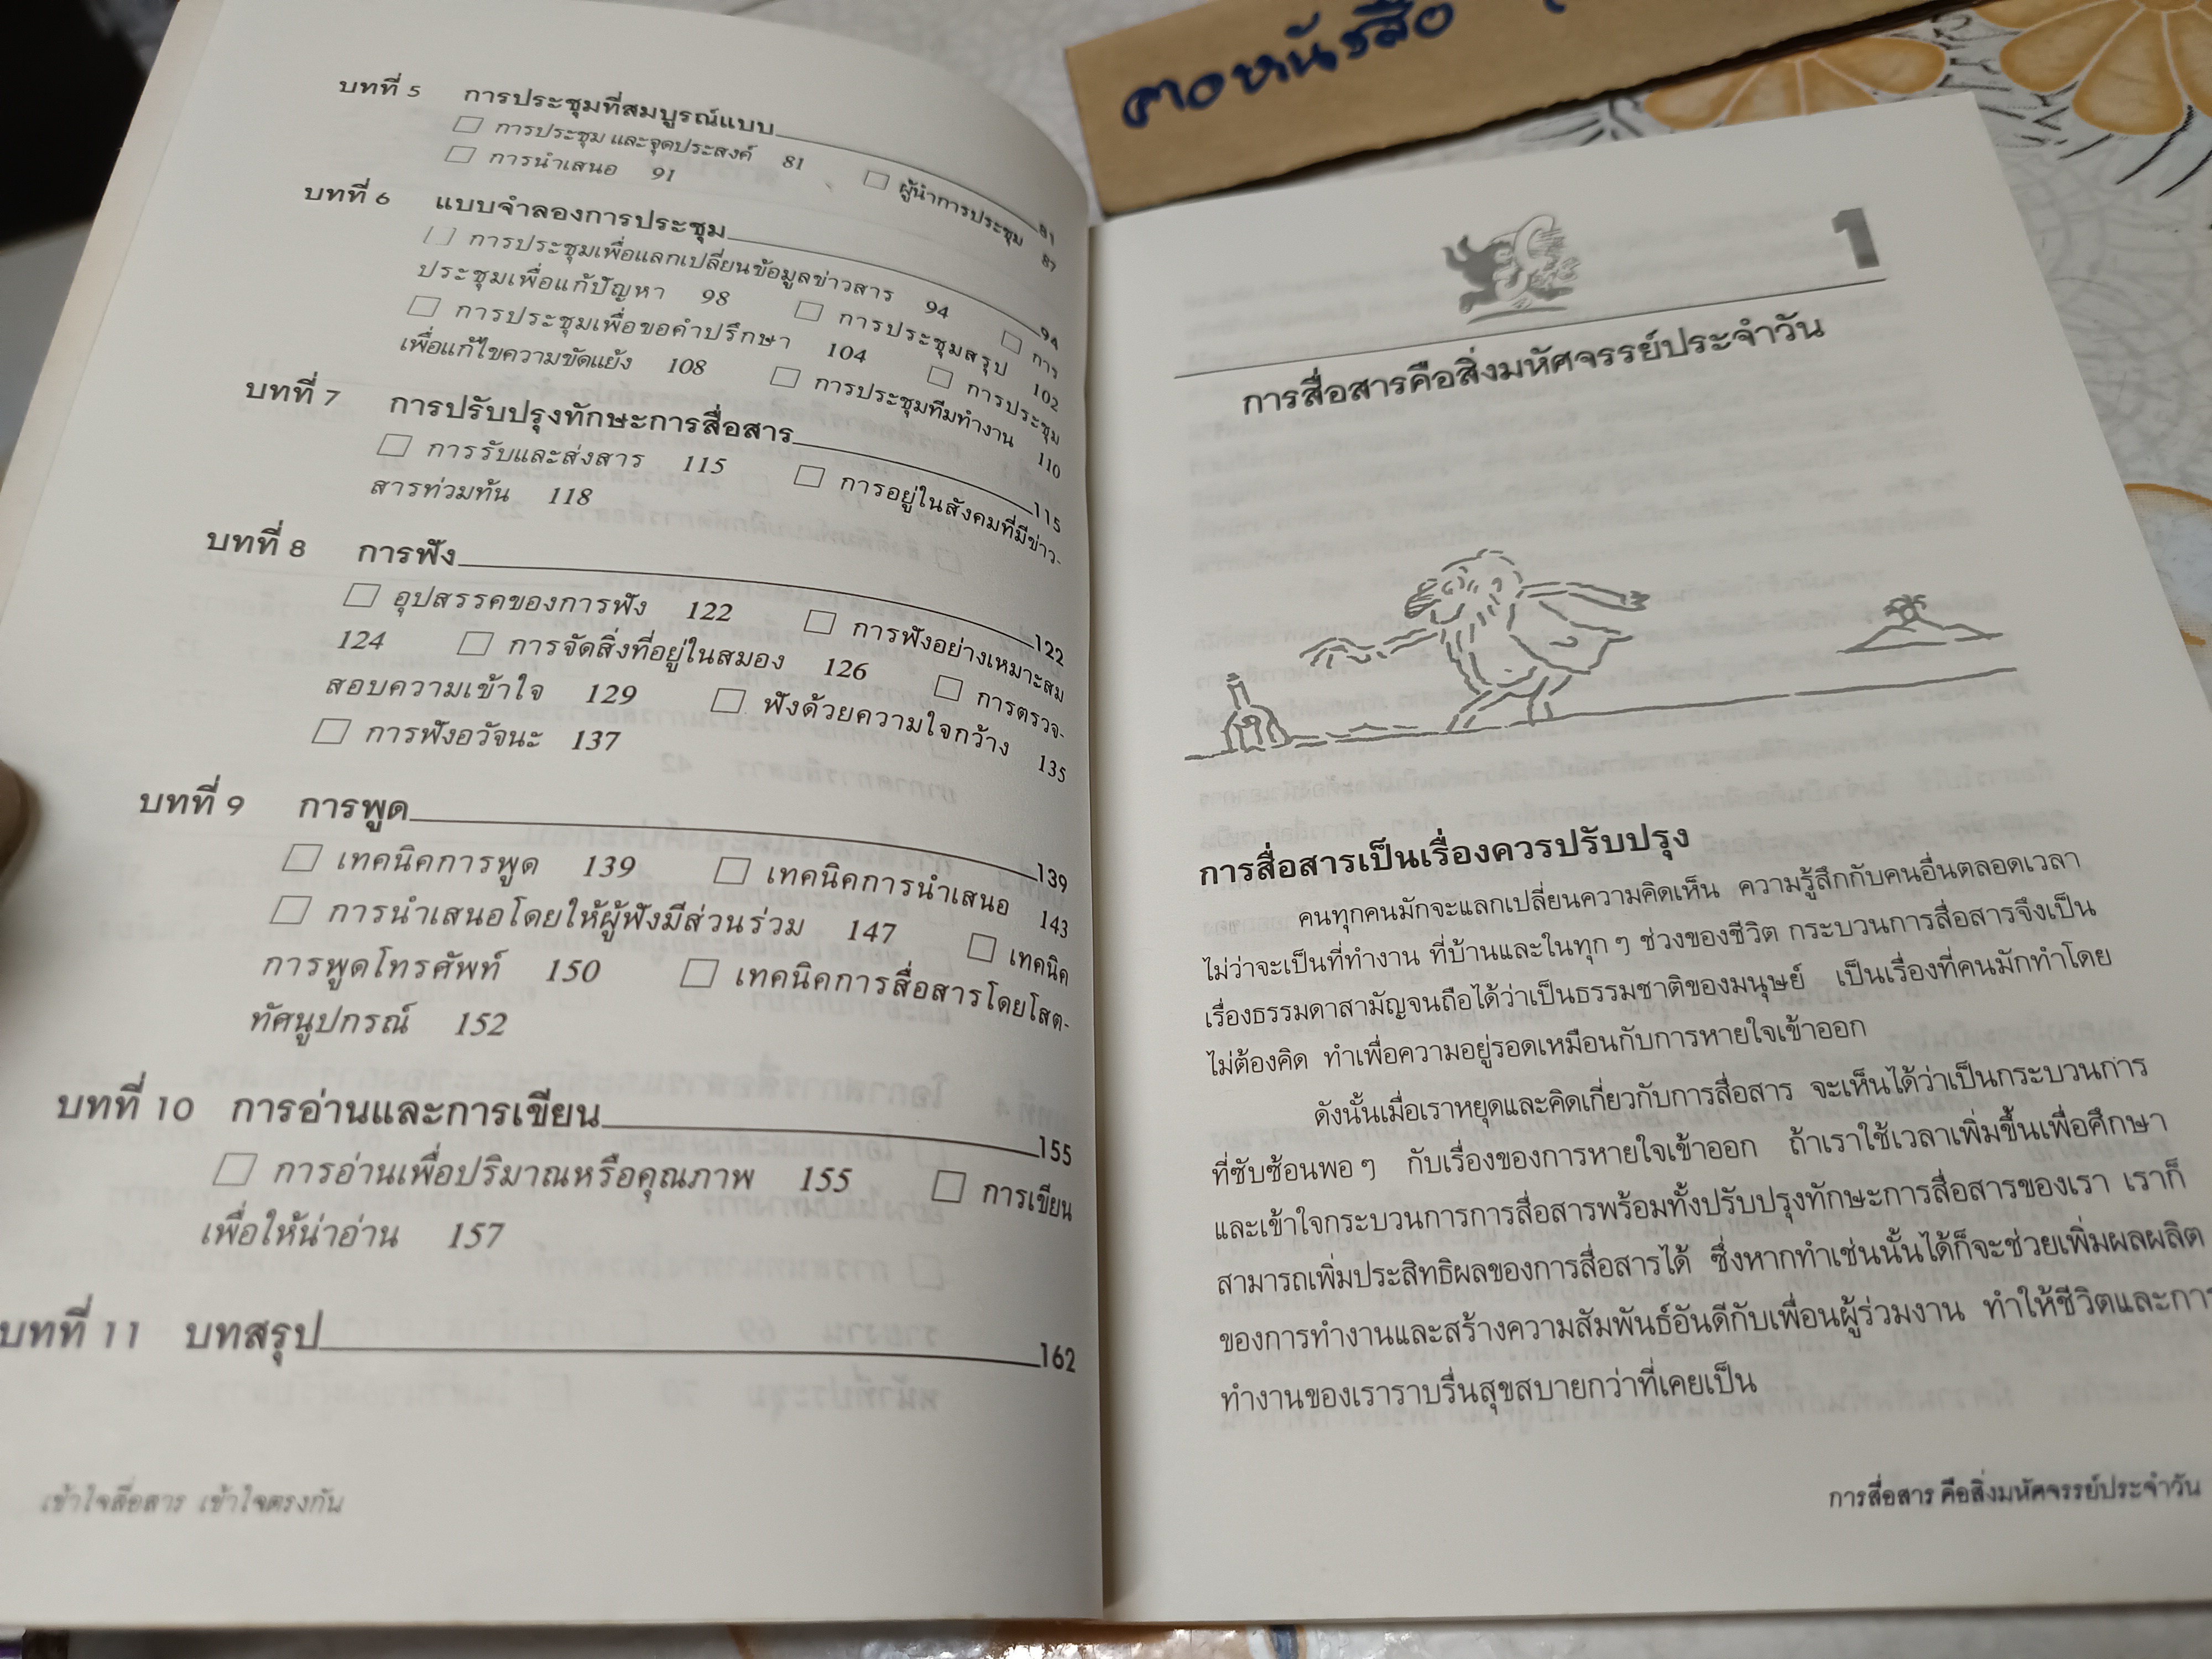 บทที่ 5 การประชุมที่สมบูรณ์แบบ 81
การประชุม และจุดประสงค์ 81 ผู้นำการประชุม 87
การนำเสนอ 91
บทที่ 6 แบบจำลองการประชุม 94
การประชุมเพื่อแลกเปลี่ยนข้อมูลข่าวสาร 94 การ
ประชุมเพื่อแก้ปัญหา 98 การประชุมสรุป 102
การประชุมเพื่อขอคำปรึกษา 104 การประชุม
เพื่อแก้ไขความขัดแย้ง 108 การประชุมทีมทำงาน 110
บทที่ 7 การปรับปรุงทักษะการสื่อสาร 115
การรับและส่งสาร 115 การอยู่ในสังคมที่มีข่าว-
สารท่วมท้น 118
บทที่ 8 การฟัง 122
อุปสรรคของการฟัง 122 การฟังอย่างเหมาะสม
124 การจัดสิ่งที่อยู่ในสมอง 126 การตรวจ-
สอบความเข้าใจ 129 ฟังด้วยความใจกว้าง 135
การฟังอวัจนะ 137
บทที่ 9 การพูด 139
เทคนิคการพูด 139 เทคนิคการนำเสนอ 143
การนำเสนอโดยให้ผู้ฟังมีส่วนร่วม 147 เทคนิค
การพูดโทรศัพท์ 150 เทคนิคการสื่อสารโดยโสต-
ทัศนูปกรณ์ 152
บทที่ 10 การอ่านและการเขียน 155
การอ่านเพื่อปริมาณหรือคุณภาพ 155 การเขียน
เพื่อให้น่าอ่าน 157
บทที่ 11 บทสรุป 162
เข้าใจสื่อสาร เข้าใจตรงกัน
ตอหนังสือ
1
การสื่อสารคือสิ่งมหัศจรรย์ประจำวัน
การสื่อสารเป็นเรื่องควรปรับปรุง
คนทุกคนมักจะแลกเปลี่ยนความคิดเห็น ความรู้สึกกับคนอื่นตลอดเวลา
ไม่ว่าจะเป็นที่ทำงาน ที่บ้านและในทุกๆ ช่วงของชีวิต กระบวนการสื่อสารจึงเป็น
เรื่องธรรมดาสามัญจนถือได้ว่าเป็นธรรมชาติของมนุษย์ เป็นเรื่องที่คนมักทำโดย
ไม่ต้องคิด ทำเพื่อความอยู่รอดเหมือนกับการหายใจเข้าออก
ดังนั้นเมื่อเราหยุดและคิดเกี่ยวกับการสื่อสาร จะเห็นได้ว่าเป็นกระบวนการ
ที่ซับซ้อนพอๆ กับเรื่องของการหายใจเข้าออก ถ้าเราใช้เวลาเพิ่มขึ้นเพื่อศึกษา
และเข้าใจกระบวนการการสื่อสารพร้อมทั้งปรับปรุงทักษะการสื่อสารของเรา เราก็
สามารถเพิ่มประสิทธิผลของการสื่อสารได้ ซึ่งหากทำเช่นนั้นได้ก็จะช่วยเพิ่มผลผลิต
ของการทำงานและสร้างความสัมพันธ์อันดีกับเพื่อนผู้ร่วมงาน ทำให้ชีวิตและการ
ทำงานของเราราบรื่นสุขสบายกว่าที่เคยเป็น
การสื่อสาร คือสิ่งมหัศจรรย์ประจำวัน